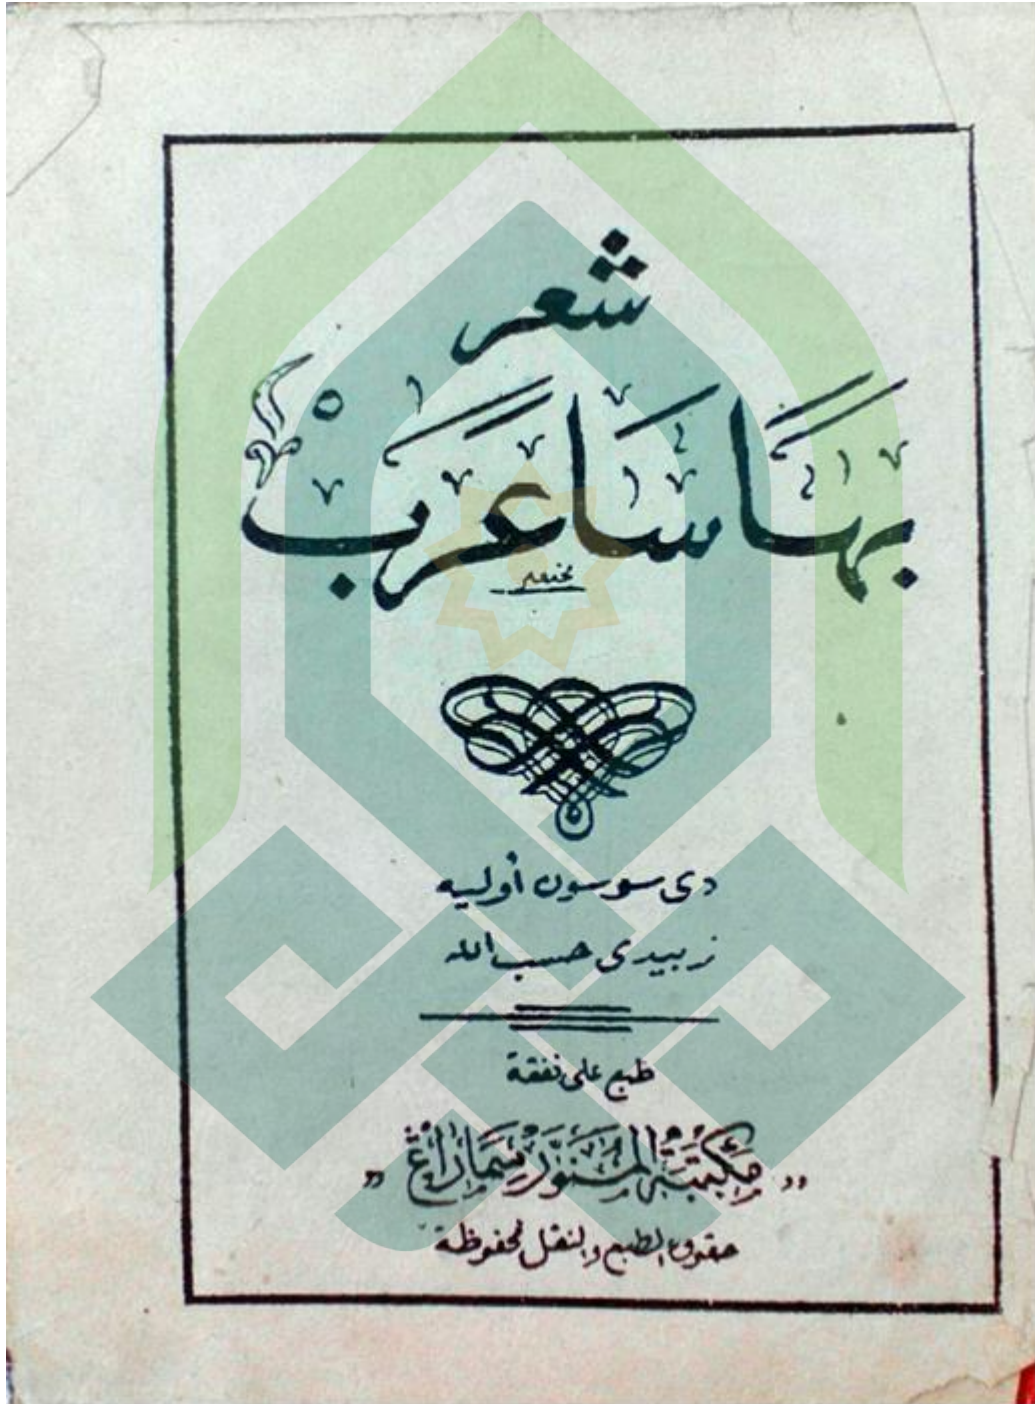 شعر
بهاسا عرب
دى سوسون أوليه
زبيدى حسب الله
طبع على نفقة
„ مكتبة المنور سماراڠ „
حقوق الطبع والنقل محفوظة